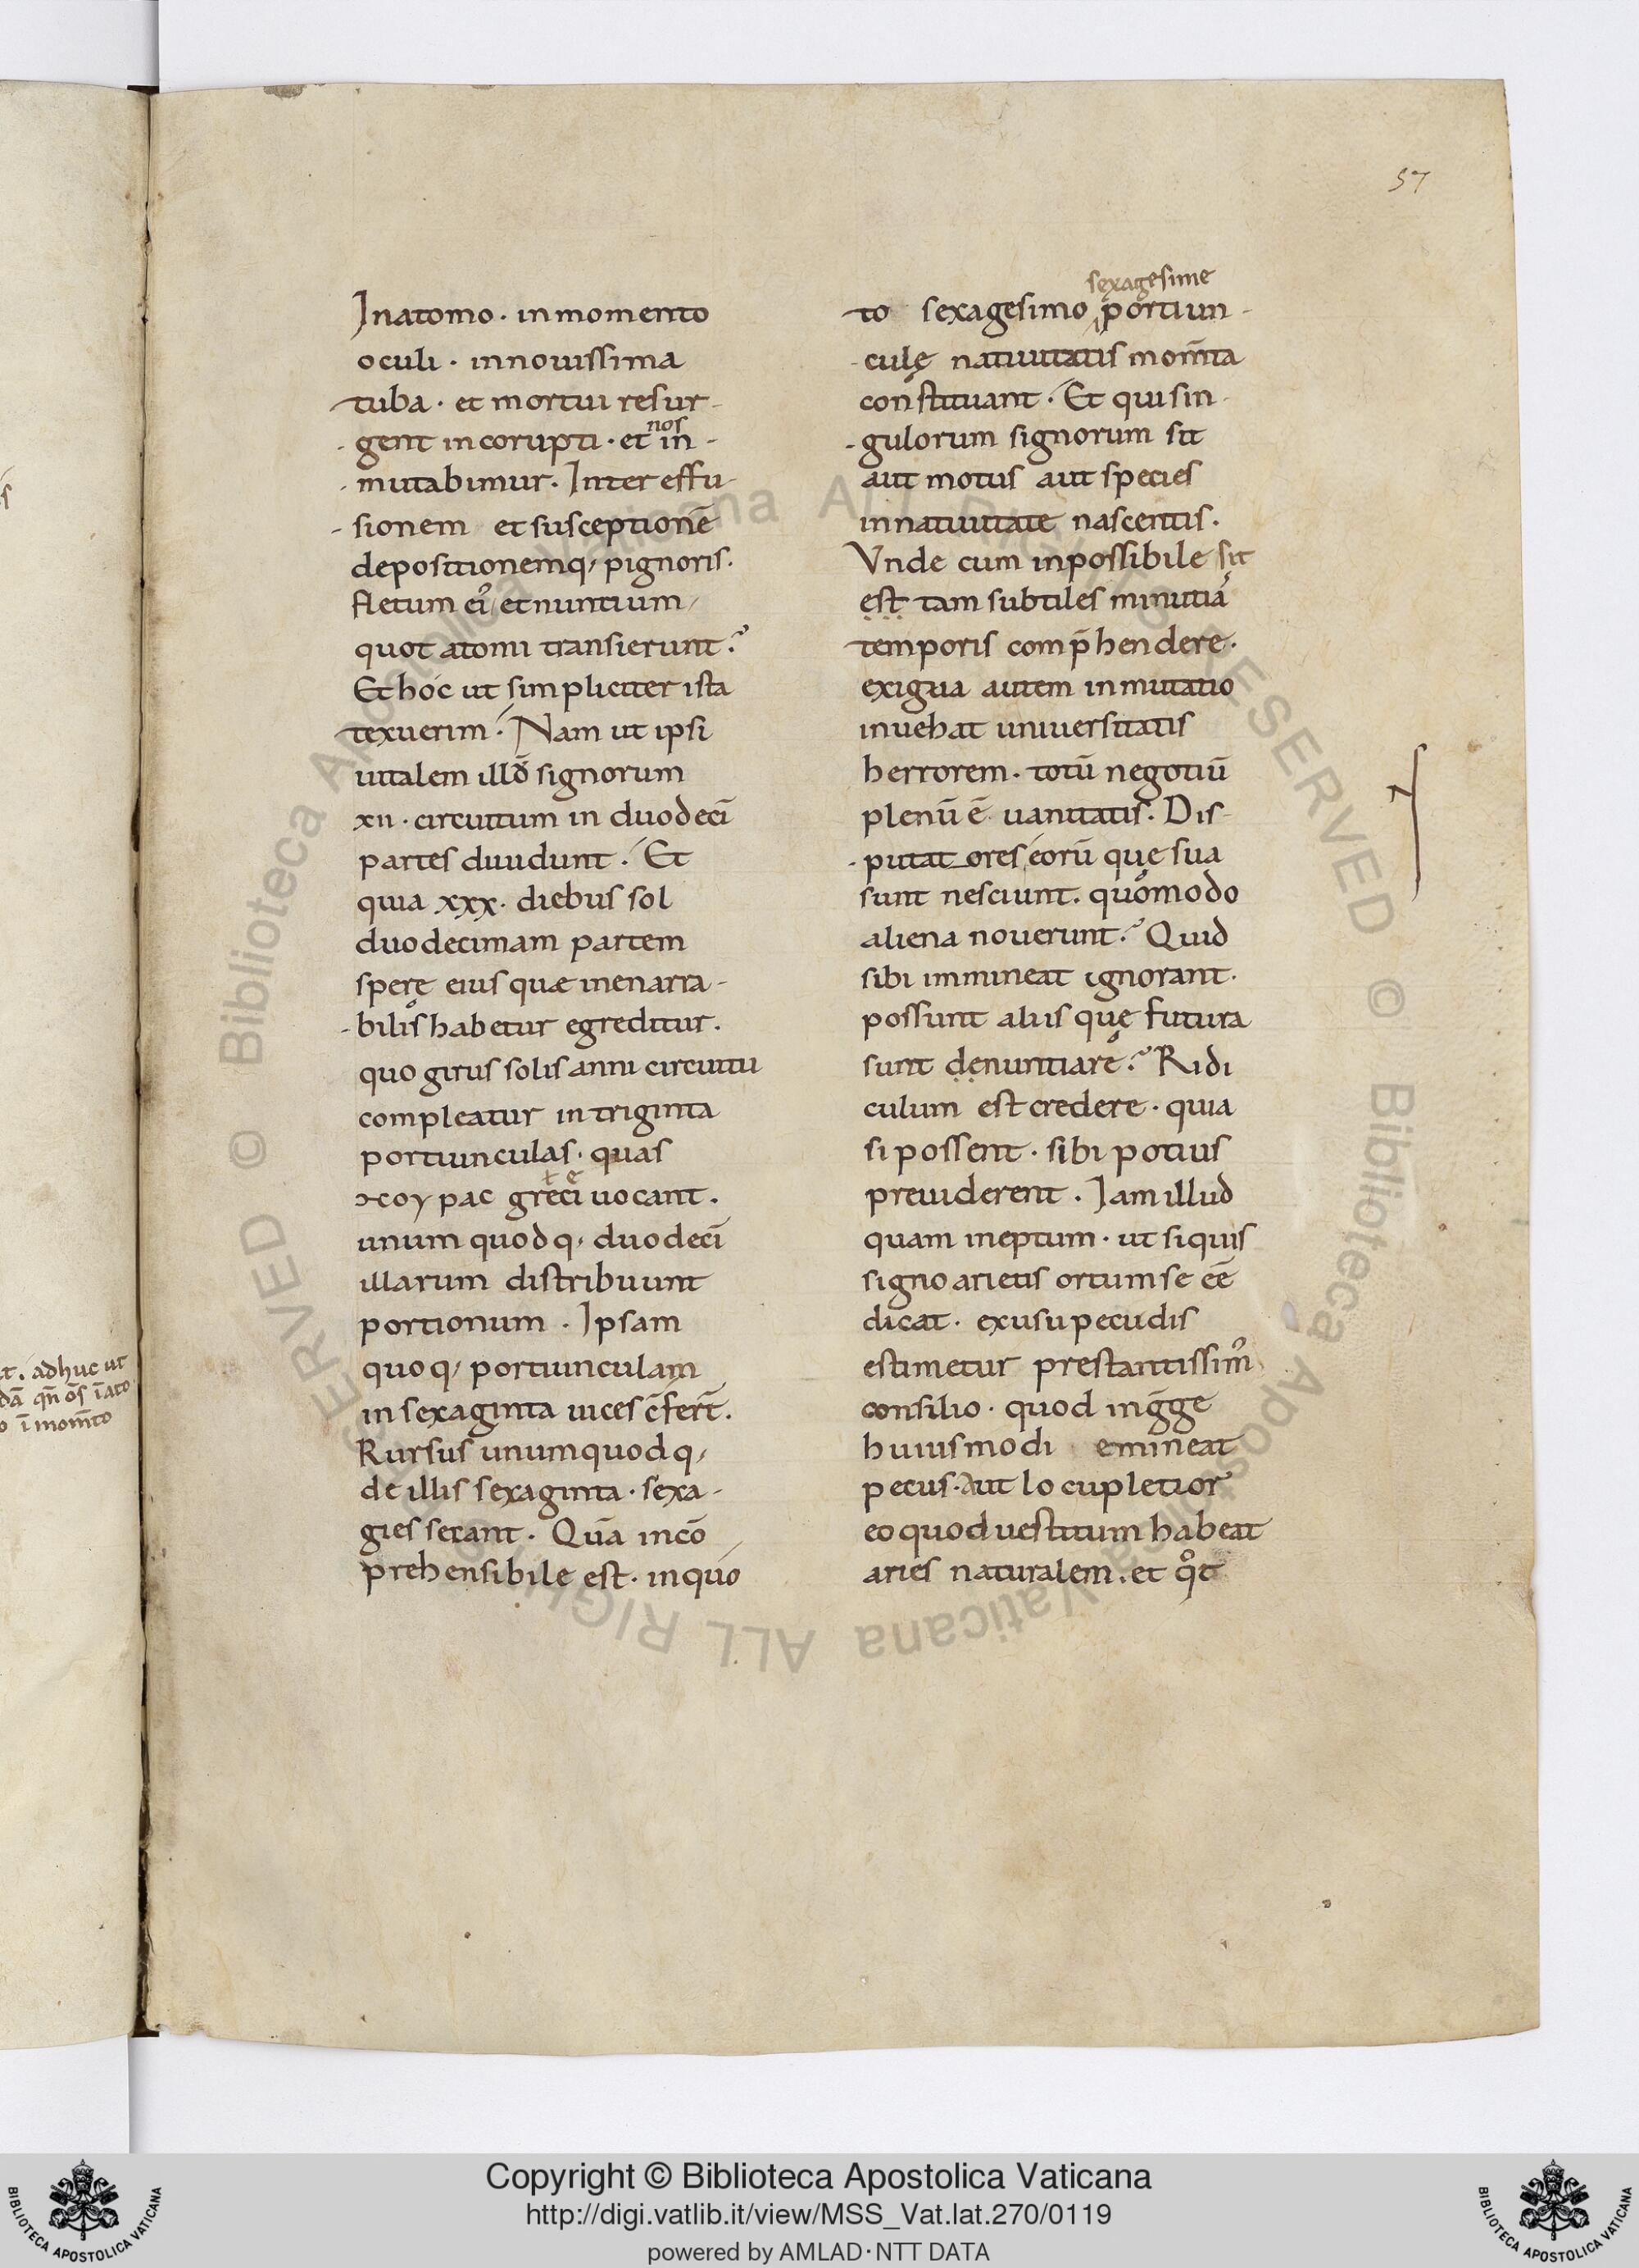 57
Inatomo · inmomento
oculi · innouissima
tuba · et mortui resur-
gent incorupti · et nos in-
mutabimur. Inter effu-
sionem et susceptionē
depositionemq; pignoris.
fletum et nuntium
quot atomi transierunt?
Et hoc ut simpliciter ista
texuerim. Nam ut ipsi
uitalem illō signorum
xii · circuitum in duodecī
partes diuidunt. Et
quia xxx. diebus sol
duodecimam partem
sperę eius quæ inenarra-
bilis habetur egreditur.
quo girus solis anni circuitu
compleatur in triginta
portiunculas · quas
greci uocant.
unum quodq; duodecī
illarum distribuunt
portionum. Ipsam
quoq; portiunculam
in sexaginta uices c̄fert̄.
Rursus unumquodq;
de illis sexaginta · sexa-
gies secant. Quā incō
prehensibile est · inquo
sexagesime
to sexagesimo portiun-
culę natiuitatis mom̄ta
constituant. Et qui sin-
gulorum signorum sit
aut motus aut species
innatiuitate nascentis.
Vnde cum inpossibile sit
est tam subtiles minutia
temporis comp̄hendere.
exigua autem inmutatio
inuehat uniuersitatis
herrorem. totū negotiū
plenū ē uanitatis. Dis-
putatores eorū quę sua
sunt nesciunt. quomodo
aliena nouerunt? Quid
sibi immineat ignorant.
possunt aliis quę futura
sunt denuntiare? Ridi
culum est credere · quia
si possent · sibi potius
preuiderent. Iam illud
quam ineptum · ut siquis
signo arietis ortum se eē
dicat · exusu pecudis
estimetur prestantissim
consilio · quod in ḡge
huiusmodi emineat
pecus · aut locupletior
eo quod uestitum habeat
aries naturalem. et
adhuc ut
Copyright © Biblioteca Apostolica Vaticana
http://digi.vatlib.it/view/MSS_Vat.lat.270/0119
powered by AMLAD·NTT DATA
BIBLIOTECA APOSTOLICA VATICANA
BIBLIOTECA APOSTOLICA VATICANA
© Biblioteca Apostolica Vaticana ALL RIGHTS RESERVED
© Biblioteca Apostolica Vaticana ALL RIGHTS RESERVED